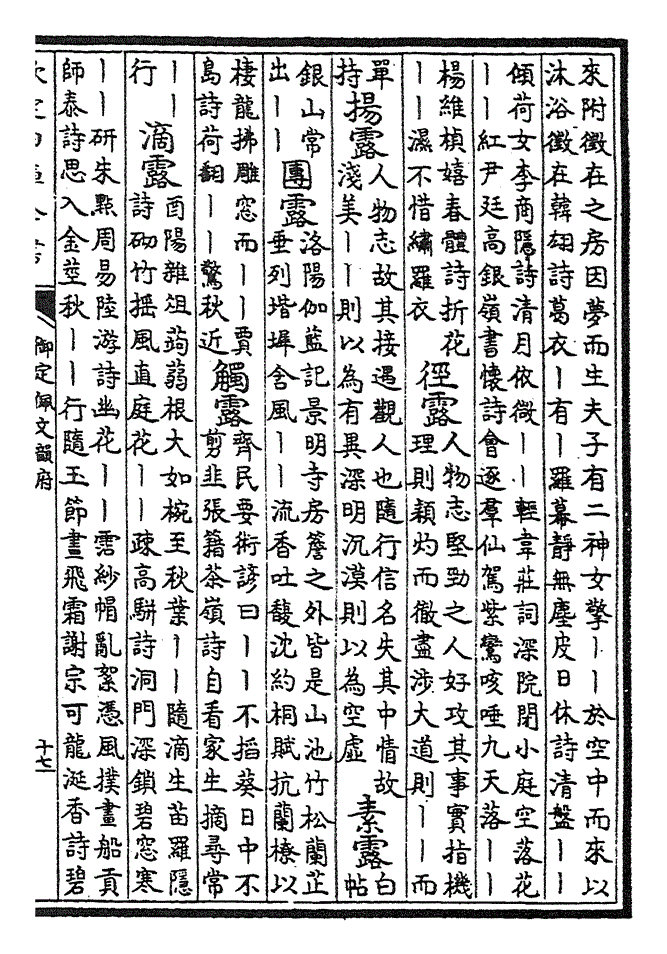 來附徵在之房因夢而生夫子有二神女擎丨丨於空中而來以
沐浴徵在韓翃詩葛衣丨有丨羅幕靜無塵皮日休詩清盤丨丨
傾荷女李商隱詩清月依微丨丨輕韋莊詞深院閉小庭空落花
丨丨紅尹廷高銀嶺書懷詩會逐羣仙駕紫鸞咳唾九天落丨丨
楊維楨嬉春體詩折花
丨丨濕不惜繡羅衣
徑露
人物志堅勁之人好攻其事實指機
理則穎灼而徹盡涉大道則丨丨而
單
持
揚露
人物志故其接遇觀人也隨行信名失其中情故
淺美丨丨則以為有異深明沉漠則以為空虛
素露
白
帖
銀山常
出丨丨
團露
洛陽伽藍記景明寺房簷之外皆是山池竹松蘭芷
垂列堦墀含風丨丨流香吐馥沈約桐賦抗蘭橑以
棲龍拂雕窓而丨丨賈
島詩荷翻丨丨驚秋近
觸露
齊民要術諺曰丨丨不掐葵日中不
剪韭張籍茶嶺詩自看家生摘尋常
丨丨
行
滴露
酉陽雜俎蒟蒻根大如椀至秋葉丨丨隨滴生苗羅隱
詩砌竹摇風直庭花丨丨疎高駢詩洞門深鎖碧窓寒
丨丨研朱點周易陸游詩幽花丨丨霑紗帽亂絮憑風撲畫船貢
師泰詩思入金莖秋丨丨行隨玉節晝飛霜謝宗可龍涎香詩碧
欽定四庫全書
御定佩文韻府
十七